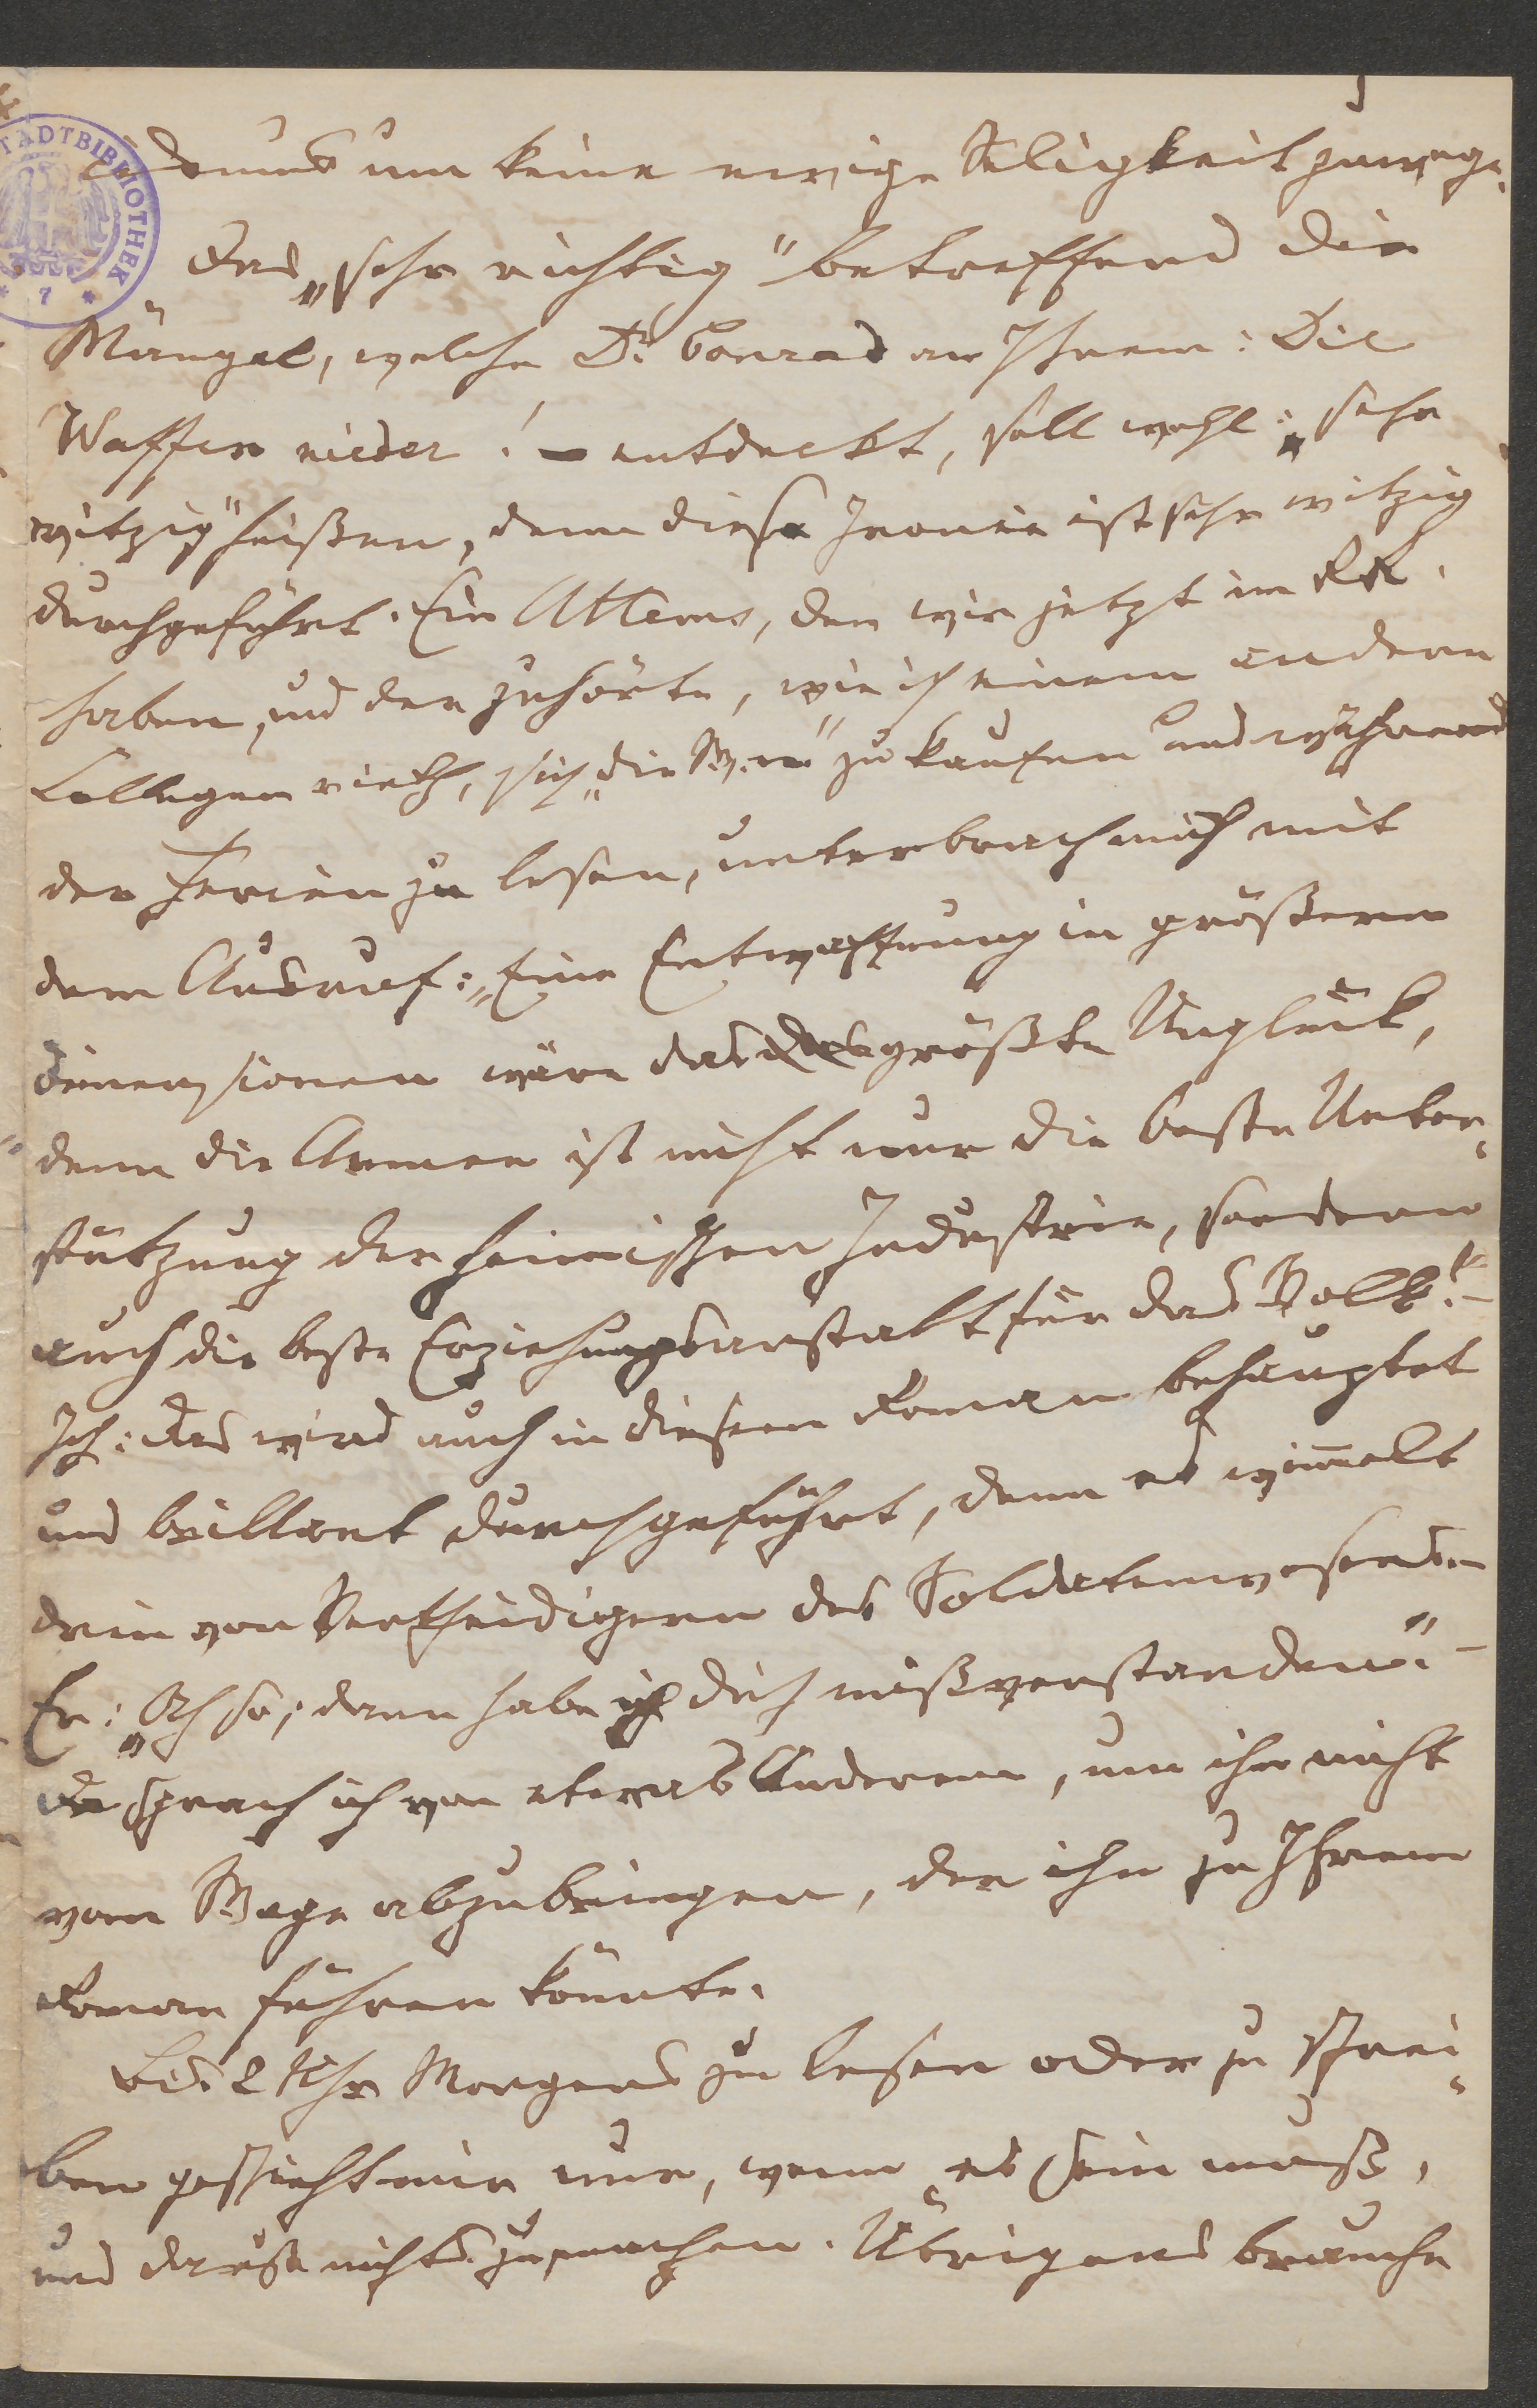 um keine ewige Seligkeit zuwege.
Das „sehr richtig" betreffend die
Mängel, welche Dr. Conrad an Ihrem: Die
Waffen nieder! – entdeckt, soll wohl: „sehr
witzig" heißen, denn diese Ironie ist sehr witzig
durchgeführt. Ein Attems, den wir jetzt im RR.
haben, und der zuhörte, wie ich einem andern
Collegen rieth, sich „die W. n." zu kaufen und während
der Ferien zu lesen, unterbrach mich mit
dem Ausruf: „Eine Entwaffnung in größeren
Dimensionen wäre das größte Unglück,
denn die Armee ist nicht nur die beste Unter-
stützung der heimischen Industrie, sondern
auch die beste Erziehungsanstalt für das Volk." –
Ich: Das wird auch in diesem Roman behauptet
und brillant durchgeführt, denn es wimmelt
drin von Vertheidigern des Soldatenwesens. –
Er: „Ach so; dann habe ich dich mißverstanden." –
Da sprach ich von etwas Anderem, um ihn nicht
vom Wege abzubringen, der ihn zu Ihrem
Roman führen könnte.
Bis 2 Uhr Morgens zu lesen oder zu schrei-
ben geschieht mir nur, wenn es sein muß,
und daraus nichts zu machen. Übrigens brauche
STADTBIBLIOTHEK
* 7 *